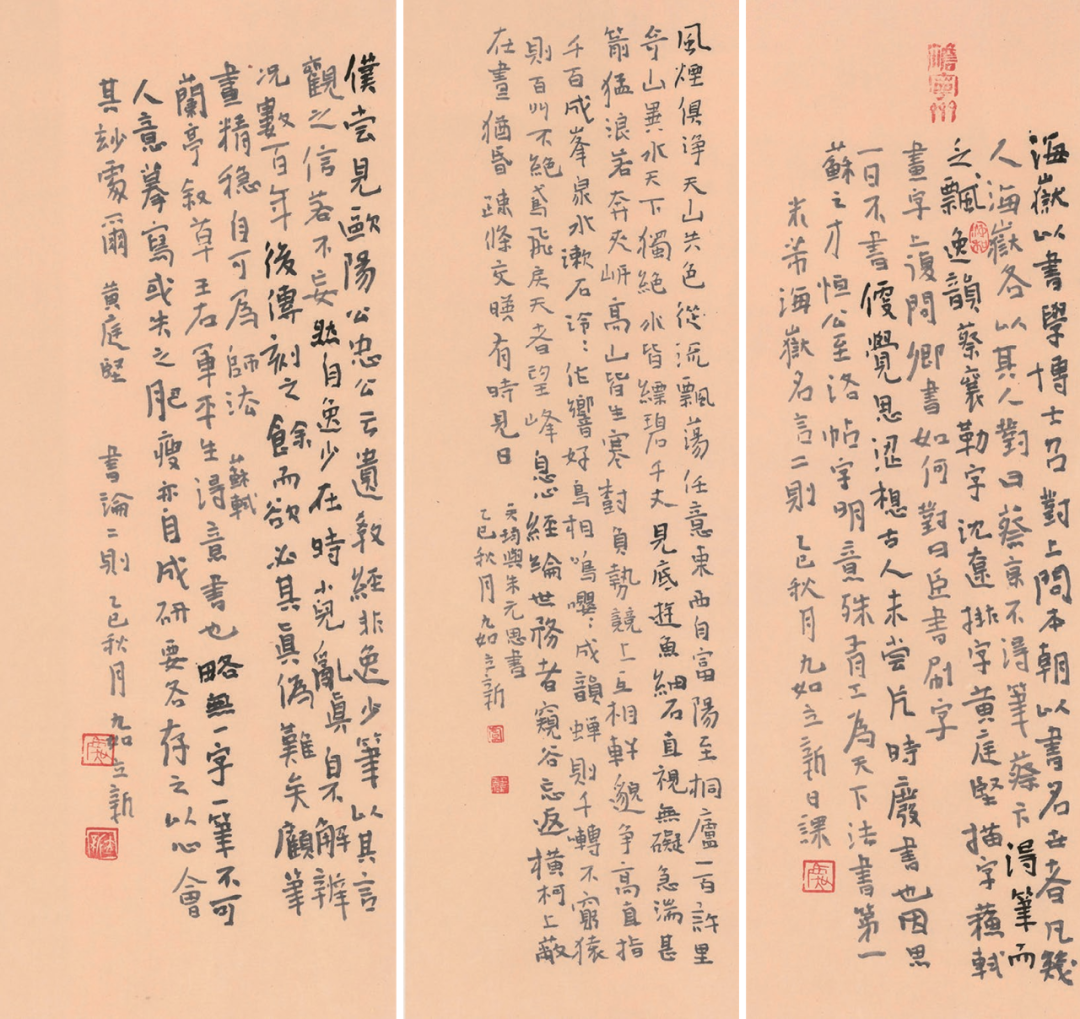 海嶽以書學博士召對上問本朝以書名世者凡幾
人海嶽各以其人對曰蔡京不得筆蔡卞得筆而
乏飄逸韻蔡襄勒字沈遼排字黄庭堅描字蘇軾
畫字上復問卿書如何對曰臣書刷字
一日不書便覺思涩想古人未尝片時廢書也因思
蘇之才恒公至洛帖字明意殊有工為天下法書第一
米芾海嶽名言二則 乙巳秋月九如立新日課
風煙俱浄天山共色從流飄蕩任意東西自富陽至桐廬一百許里
奇山異水天下獨絶水皆縹碧千丈見底遊魚細石直視無礙急湍甚
箭猛浪若奔夾岍高山皆生寒樹負勢競上互相軒邈爭高直指
千百成峯泉水漱石泠:作響好鳥相鳴嚶:成韻蟬則千轉不窮猿
則百叫不絶鳶飛戾天者望峰息心經綸世務者窺谷忘返橫柯上蔽
在晝猶昏疎條交暎有時見日
吴均與朱元思書
乙巳秋月九如立新
僕尝見歐陽公忠公云遺教經非逸少筆以其言
觀之信若不妄然自逸少在時小兒亂真自不解辨
况數百年後傳刻之餘而欲必其真偽難矣顧筆
畫精稳自可為師法 蘇軾
蘭亭叙草王右軍平生得意書也略無一字一筆不可
人意摹寫或失之肥瘦亦自成研要各存之以心會
其玅處爾 黄庭堅 書論二則 乙巳秋月九如立新